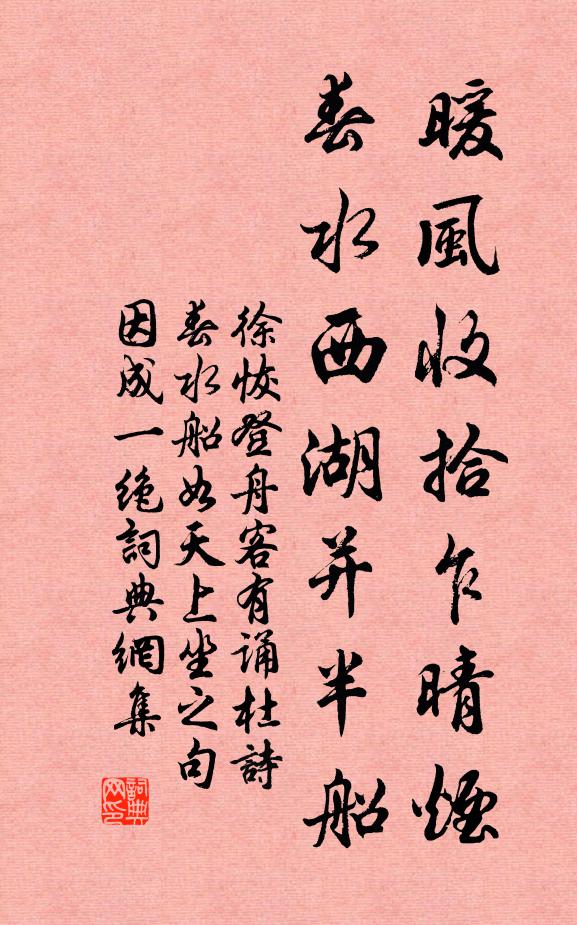 暖風收拾乍晴煙
春水西湖并半船
徐恢登舟客有誦杜詩
春水船如天上坐之句
因成一絕詞典網集
詞典
网印